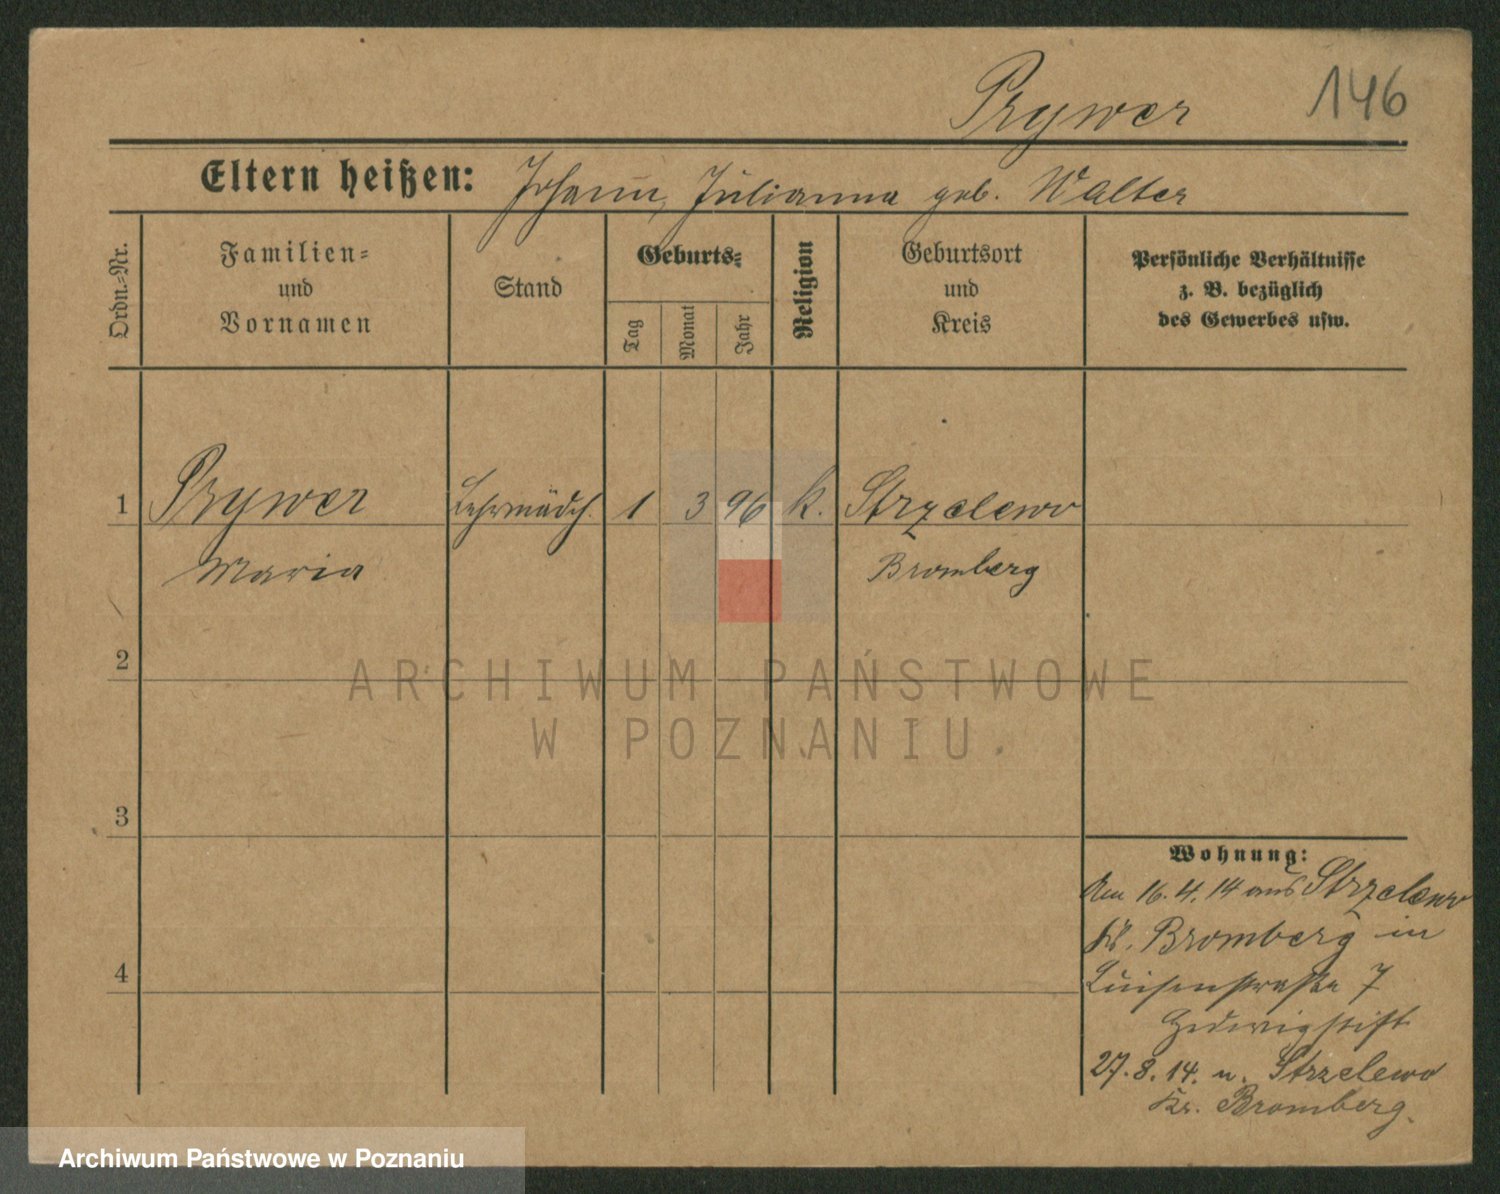 Prywer 146
Eltern heißen: Johann, Julianna geb. Walter
Ordn.-Nr.
Familien-
und
Vornamen
Stand
Geburts-
Tag
Monat
Jahr
Religion
Geburtsort
und
Kreis
Persönliche Verhältnisse
z. B. bezüglich
des Gewerbes usw.
1 Prywer Lehrmädch. 1 3 96 k. Strzelewo
Maria Bromberg
2
ARCHIWUM PAŃSTWOWE
W POZNANIU
3
Wohnung:
Am 16.4.14 aus Strzelewo
Kr. Bromberg in
4
Luisenstraße 7
Hedwigstift
27.8.14. n. Strzelewo
Kr. Bromberg.
Archiwum Państwowe w Poznaniu